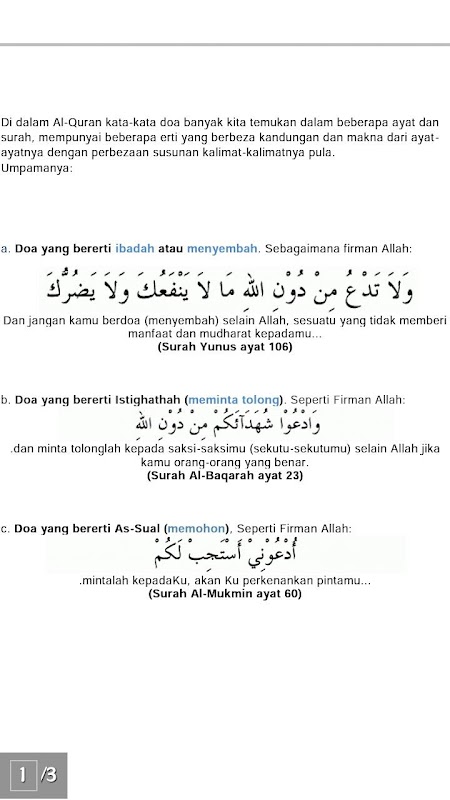 Di dalam Al-Quran kata-kata doa banyak kita temukan dalam beberapa ayat dan
surah, mempunyai beberapa erti yang berbeza kandungan dan makna dari ayat-
ayatnya dengan perbezaan susunan kalimat-kalimatnya pula.
Umpamanya:
a. Doa yang bererti ibadah atau menyembah. Sebagaimana firman Allah:
وَلَا تَدْعُ مِنْ دُوْنِ اللهِ مَا لَا يَنْفَعُكَ وَلَا يَضُرُّكَ
Dan jangan kamu berdoa (menyembah) selain Allah, sesuatu yang tidak memberi
manfaat dan mudharat kepadamu...
(Surah Yunus ayat 106)
b. Doa yang bererti Istighathah (meminta tolong). Seperti Firman Allah:
وَادْعُوْا شُهَدَآئَكُمْ مِنْ دُوْنِ اللهِ
.dan minta tolonglah kepada saksi-saksimu (sekutu-sekutumu) selain Allah jika
kamu orang-orang yang benar.
(Surah Al-Baqarah ayat 23)
c. Doa yang bererti As-Sual (memohon), Seperti Firman Allah:
أُدْعُوْنِيْ أَسْتَجِبْ لَكُمْ
.mintalah kepadaKu, akan Ku perkenankan pintamu...
(Surah Al-Mukmin ayat 60)
1 /3